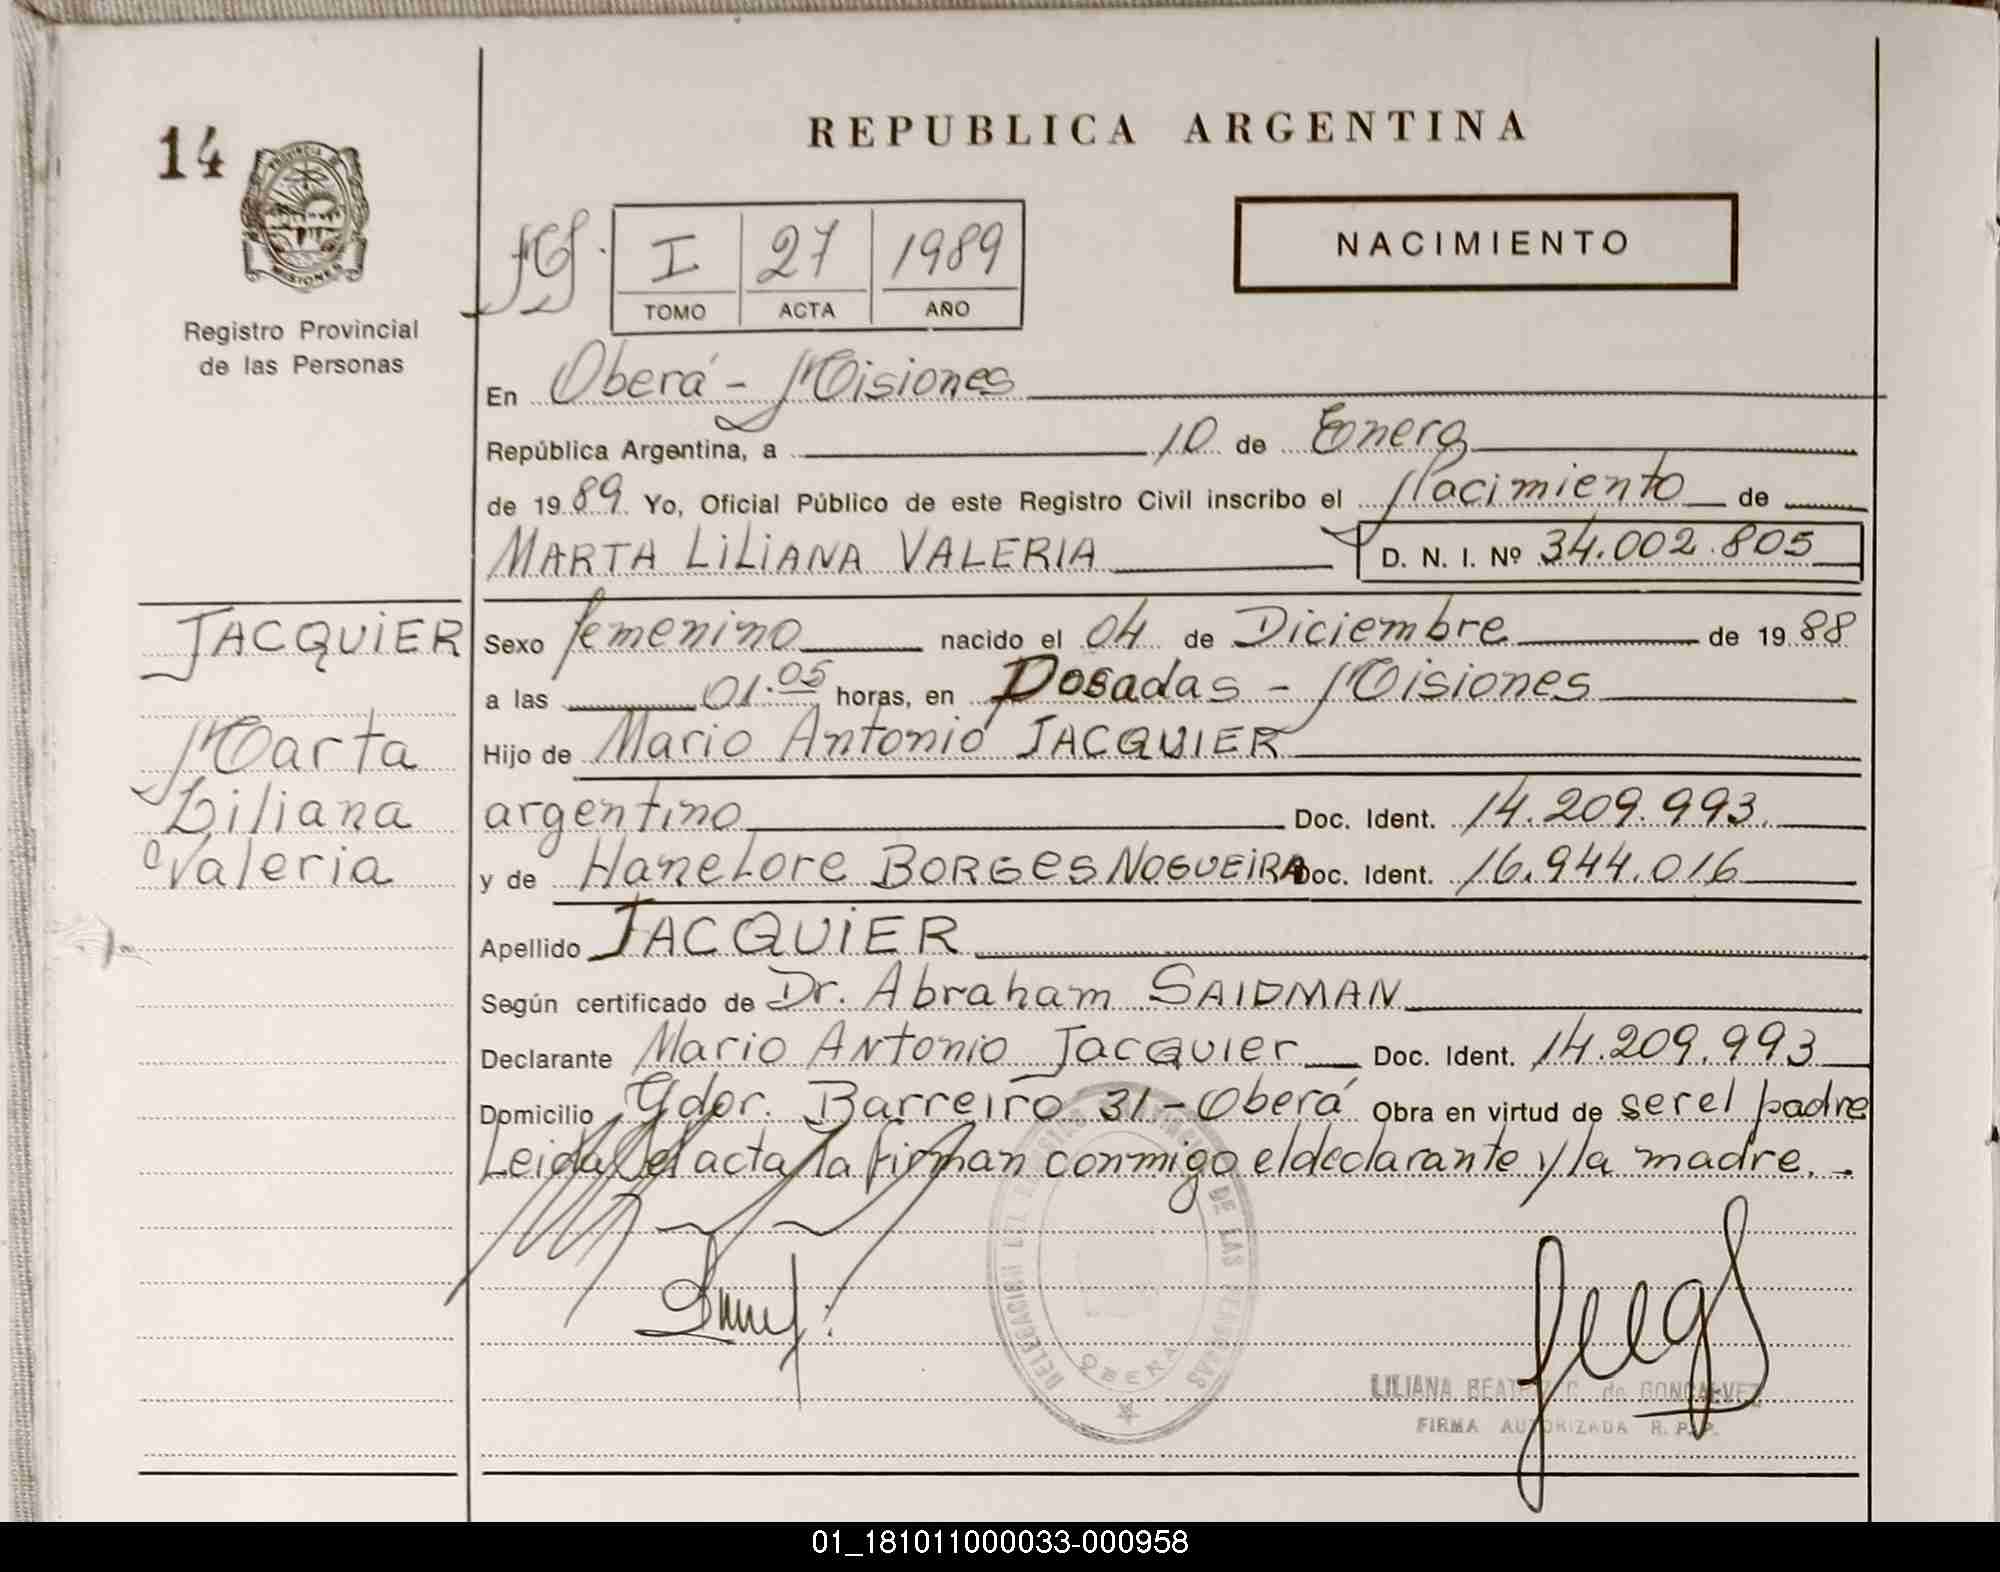 14
PROVINCIA DE
MISIONES
Registro Provincial
de las Personas
REPUBLICA ARGENTINA
NACIMIENTO
I 27 1989
TOMO ACTA AÑO
En Oberá - Misiones
República Argentina, a 10 de Enero
de 1989 Yo, Oficial Público de este Registro Civil inscribo el Nacimiento de
MARTA LILIANA VALERIA D. N. I. Nº 34.002.805
JACQUIER
Marta
Liliana
Valeria
Sexo femenino nacido el 04 de Diciembre de 1988
a las 01.05 horas, en Posadas - Misiones
Hijo de Mario Antonio JACQUIER
argentino Doc. Ident. 14.209.993.
y de HaneLore BORGES NOGUEIRA Doc. Ident. 16.944.016
Apellido JACQUIER
Según certificado de Dr. Abraham SAIDMAN
Declarante Mario Antonio Jacquier Doc. Ident. 14.209.993
Domicilio Gdor. Barreiro 31 - Oberá Obra en virtud de ser el padre
Leida el acta la firman conmigo el declarante y la madre. -
DELEGACION DEL REGISTRO PROVINCIAL DE LAS PERSONAS
OBERA
LILIANA BEATRIZ C. de GONCALVEZ
FIRMA AUTORIZADA R. P. P.
01_181011000033-000958